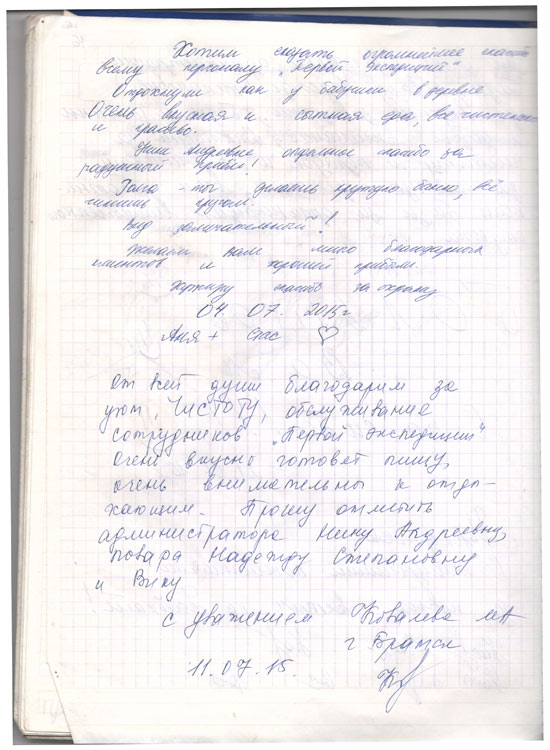 Хотим сказать огромнейшее спасибо
всему персоналу „Первой Экспедиции"
Отдохнули как у бабушки в деревне
Очень вкусная и сытная еда, все чистенько
и красиво.
Нине Андреевне отдельное спасибо за
радушный приём!
делаешь крутую баню, всё
Вид замечательный!
Желаем вам много благодарных
клиентов и хорошей прибыли.
спасибо за охрану
04. 07. 2015г
Аня + Стас ♡
От всей души благодарим за
уют, ЧИСТОТУ, обслуживание
сотрудников „Первой экспедиции"
Очень вкусно готовят пищу,
очень внимательны к отды-
хающим. Прошу отметить
администратора Нину Андреевну,
повара Надежду Степановну
и Вику
с уважением Ковалева МА
г Братск
11.07.15.